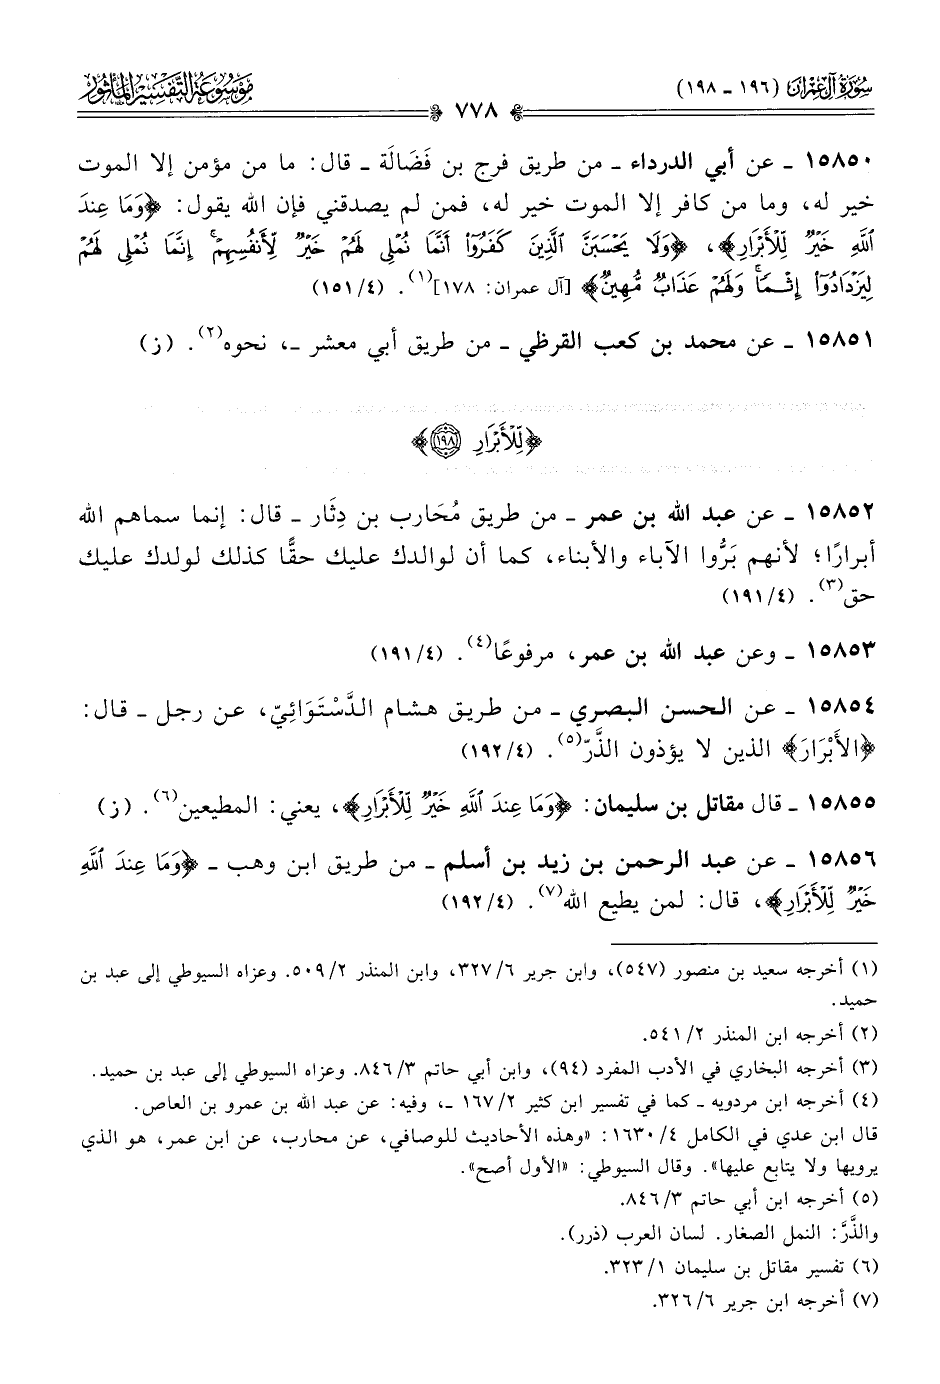 سُورَةُ آلِ عِمْرَانَ (١٩٦ - ١٩٨)
٧٧٨
مَوْسُوعَةُ التَّفْسِيرِ المَأْثُورِ
١٥٨٥٠ - عن أبي الدرداء - من طريق فرج بن فَضَالَة - قال: ما من مؤمن إلا الموت
خير له، وما من كافر إلا الموت خير له، فمن لم يصدقني فإن الله يقول: ﴿وَمَا عِندَ
ٱللَّهِ خَيْرٌ لِّلْأَبْرَارِ﴾، ﴿وَلَا يَحْسَبَنَّ ٱلَّذِينَ كَفَرُوٓا۟ أَنَّمَا نُمْلِى لَهُمْ خَيْرٌ لِّأَنفُسِهِمْ ۚ إِنَّمَا نُمْلِى لَهُمْ
لِيَزْدَادُوٓا۟ إِثْمًا ۚ وَلَهُمْ عَذَابٌ مُّهِينٌ﴾ [آل عمران: ١٧٨](١). (١٥١/٤)
١٥٨٥١ - عن محمد بن كعب القرظي - من طريق أبي معشر -، نحوه(٢). (ز)
﴿لِّلْأَبْرَارِ ١٩٨﴾
١٥٨٥٢ - عن عبد الله بن عمر - من طريق مُحَارب بن دِثَار - قال: إنما سماهم الله
أبرارًا؛ لأنهم بَرُّوا الآباء والأبناء، كما أن لوالدك عليك حقًّا كذلك لولدك عليك
حق(٣). (١٩١/٤)
١٥٨٥٣ - وعن عبد الله بن عمر، مرفوعًا(٤). (١٩١/٤)
١٥٨٥٤ - عن الحسن البصري - من طريق هشام الدَّسْتَوَائِيّ، عن رجل - قال:
﴿الأَبْرَارَ﴾ الذين لا يؤذون الذَّرّ(٥). (١٩٢/٤)
١٥٨٥٥ - قال مقاتل بن سليمان: ﴿وَمَا عِندَ ٱللَّهِ خَيْرٌ لِّلْأَبْرَارِ﴾، يعني: المطيعين(٦). (ز)
١٥٨٥٦ - عن عبد الرحمن بن زيد بن أسلم - من طريق ابن وهب - ﴿وَمَا عِندَ ٱللَّهِ
خَيْرٌ لِّلْأَبْرَارِ﴾، قال: لمن يطيع الله(٧). (١٩٢/٤)
(١) أخرجه سعيد بن منصور (٥٤٧)، وابن جرير ٣٢٧/٦، وابن المنذر ٥٠٩/٢. وعزاه السيوطي إلى عبد بن
حميد.
(٢) أخرجه ابن المنذر ٥٤١/٢.
(٣) أخرجه البخاري في الأدب المفرد (٩٤)، وابن أبي حاتم ٨٤٦/٣. وعزاه السيوطي إلى عبد بن حميد.
(٤) أخرجه ابن مردويه - كما في تفسير ابن كثير ١٦٧/٢ -، وفيه: عن عبد الله بن عمرو بن العاص.
قال ابن عدي في الكامل ١٦٣٠/٤: «وهذه الأحاديث للوصافي، عن محارب، عن ابن عمر، هو الذي
يرويها ولا يتابع عليها». وقال السيوطي: «الأول أصح».
(٥) أخرجه ابن أبي حاتم ٨٤٦/٣.
والذَّرَّ: النمل الصغار. لسان العرب (ذرر).
(٦) تفسير مقاتل بن سليمان ٣٢٣/١.
(٧) أخرجه ابن جرير ٣٢٦/٦.